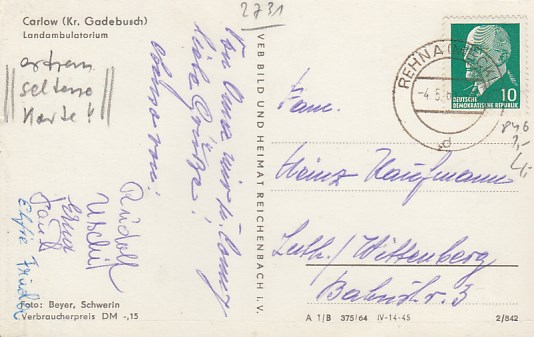 2731
Carlow (Kr. Gadebusch)
Landambulatorium
extrem
seltene
Karte!
liebe Grüße!
Rudolf
Uschi
Erna
Paul
Elfie Frieder
Foto: Beyer, Schwerin
Verbraucherpreis DM -,15
VEB BILD UND HEIMAT REICHENBACH i. V.
REHNA (MECKL)
-4.5.6
10
DEUTSCHE
DEMOKRATISCHE REPUBLIK
Fam.
Heinz Kaufmann
Luth./Wittenberg
Bahnstr. 3
A 1/B 375/64 IV-14-45
2/842